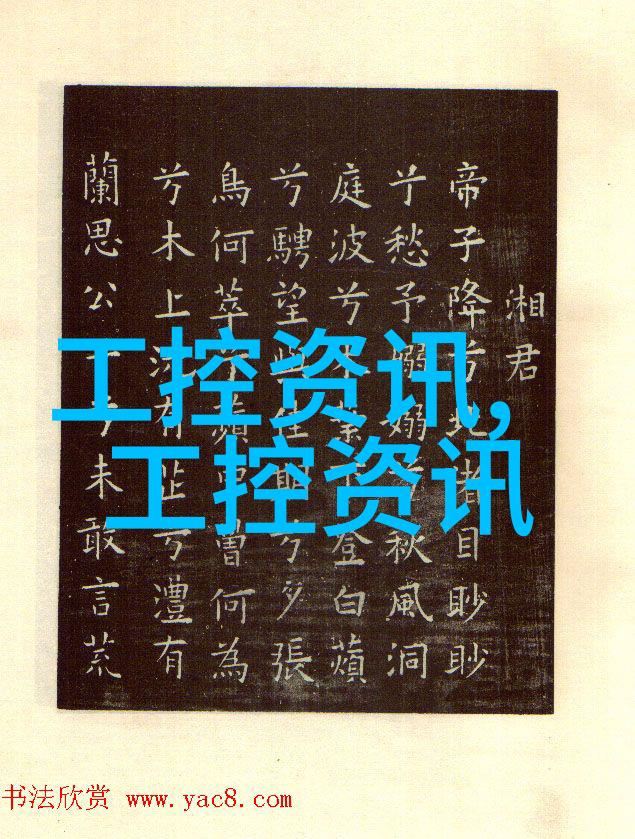 湘君
帝子降兮北渚目眇眇
兮愁予嫋嫋兮秋風洞
庭波兮葉下登白蘋
兮騁望與佳期兮夕張
鳥何萃兮蘋中曾何為
兮木上沅有芷兮澧有
蘭思公兮未敢言荒
工控资讯,
工控资讯
书法欣赏 www.yac8.com